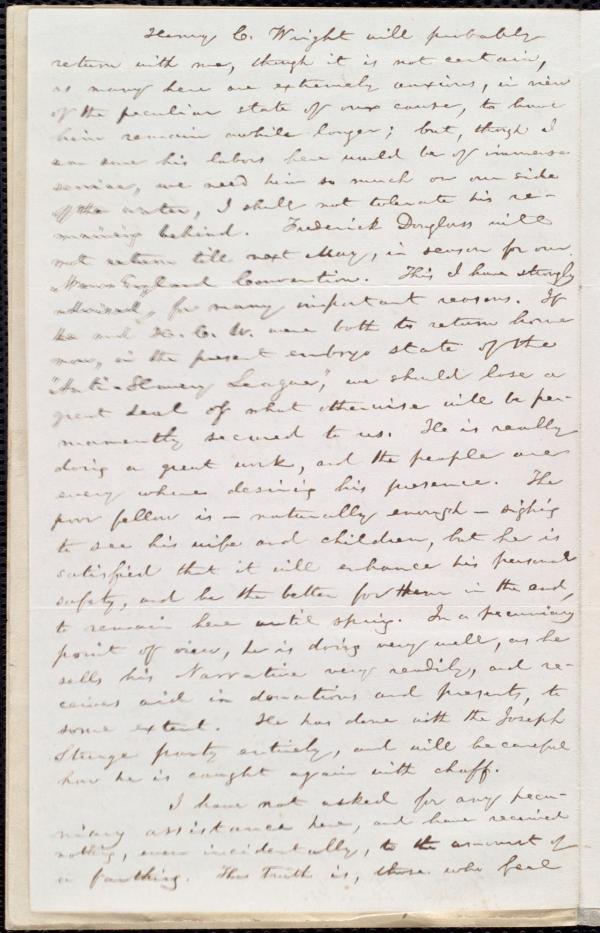 Henry C. Wright will probably
return with me, though it is not certain,
as many here are extremely anxious, in view
of the peculiar state of our cause, to have
him remain awhile longer; but, though I
am sure his labors here would be of immense
service, we need him so much on our side
of the water, I shall not tolerate his re-
maining behind. Frederick Douglass will
not return till next May, in season for our
New England Convention. This I have strongly
advised, for many important reasons. If
he and H. C. W. were both to return home
now, in the present embryo state of the
"Anti-Slavery League," we should lose a
great deal of what otherwise will be per-
manently secured to us. He is really
doing a great work, and the people are
every where desiring his presence. The
poor fellow is – naturally enough – sighing
to see his wife and children, but he is
satisfied that it will enhance his personal
safety, and be the better for them in the end,
to remain here until spring. In a pecuniary
point of view, he is doing very well, as he
sells his Narrative very readily, and re-
ceives aid in donations and presents, to
some extent. He has done with the Joseph
Sturge party entirely, and will be careful
how he is caught again with chaff.
I have not asked for any pecu-
niary assistance here, and have received
nothing, even incidentally, to the amount of
a farthing. The truth is, those who feel